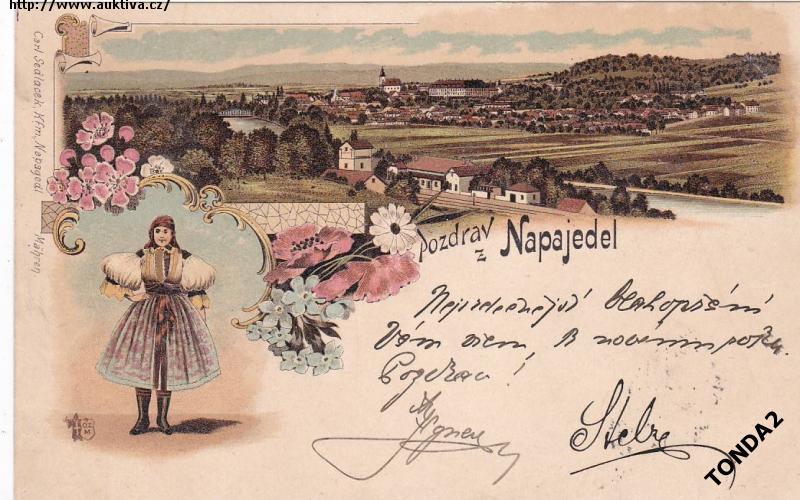 http://www.auktiva.cz/
Carl Sedlacek, Kfm, Napagedl Mähren
pozdrav
z Napajedel
Nejsrdečnější Blahopřání
Vám všem K novému roku
Pozdrav!
TONDA2